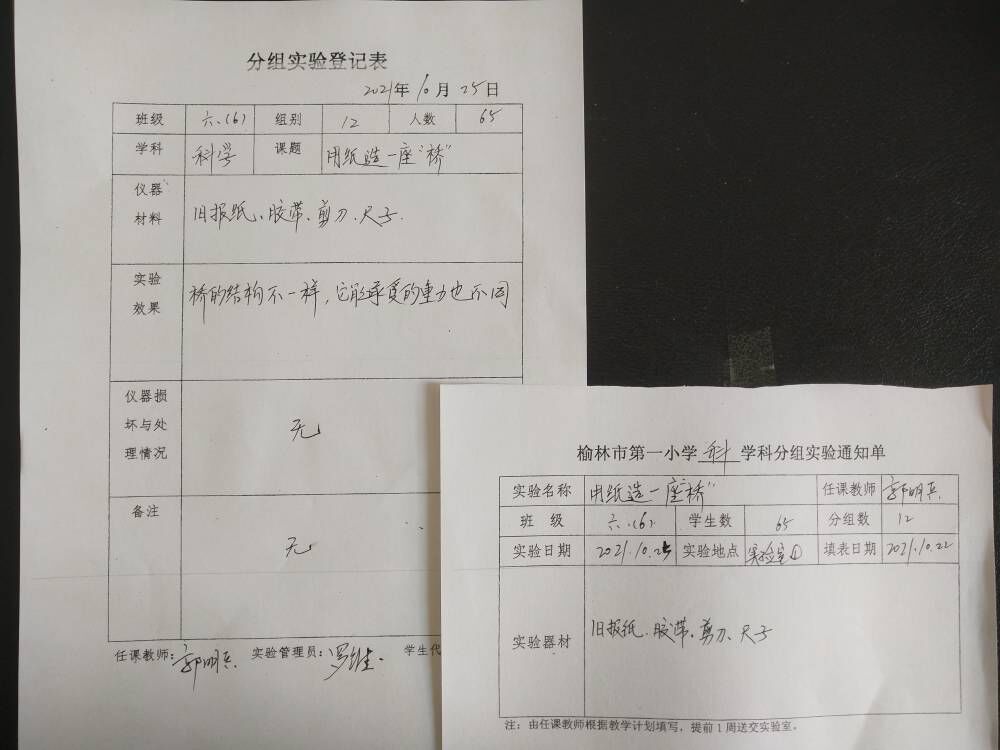 分组实验登记表
2021年10月25日
班级 六.(6) 组别 12 人数 65
学科 科学 课题 用纸造一座"桥"
仪器材料 旧报纸、胶带、剪刀、尺子.
实验效果 桥的结构不一样,它能承受的重力也不同
仪器损坏与处理情况 无
备注 无
任课教师:郭明兵. 实验管理员:罗维. 学生代
榆林市第一小学 科 学科分组实验通知单
实验名称 用纸造一座"桥" 任课教师 郭明兵.
班 级 六.(6). 学生数 65 分组数 12
实验日期 2021.10.25 实验地点 实验室① 填表日期 2021.10.22
实验器材 旧报纸.胶带、剪刀、尺子
注:由任课教师根据教学计划填写,提前1周送交实验室.